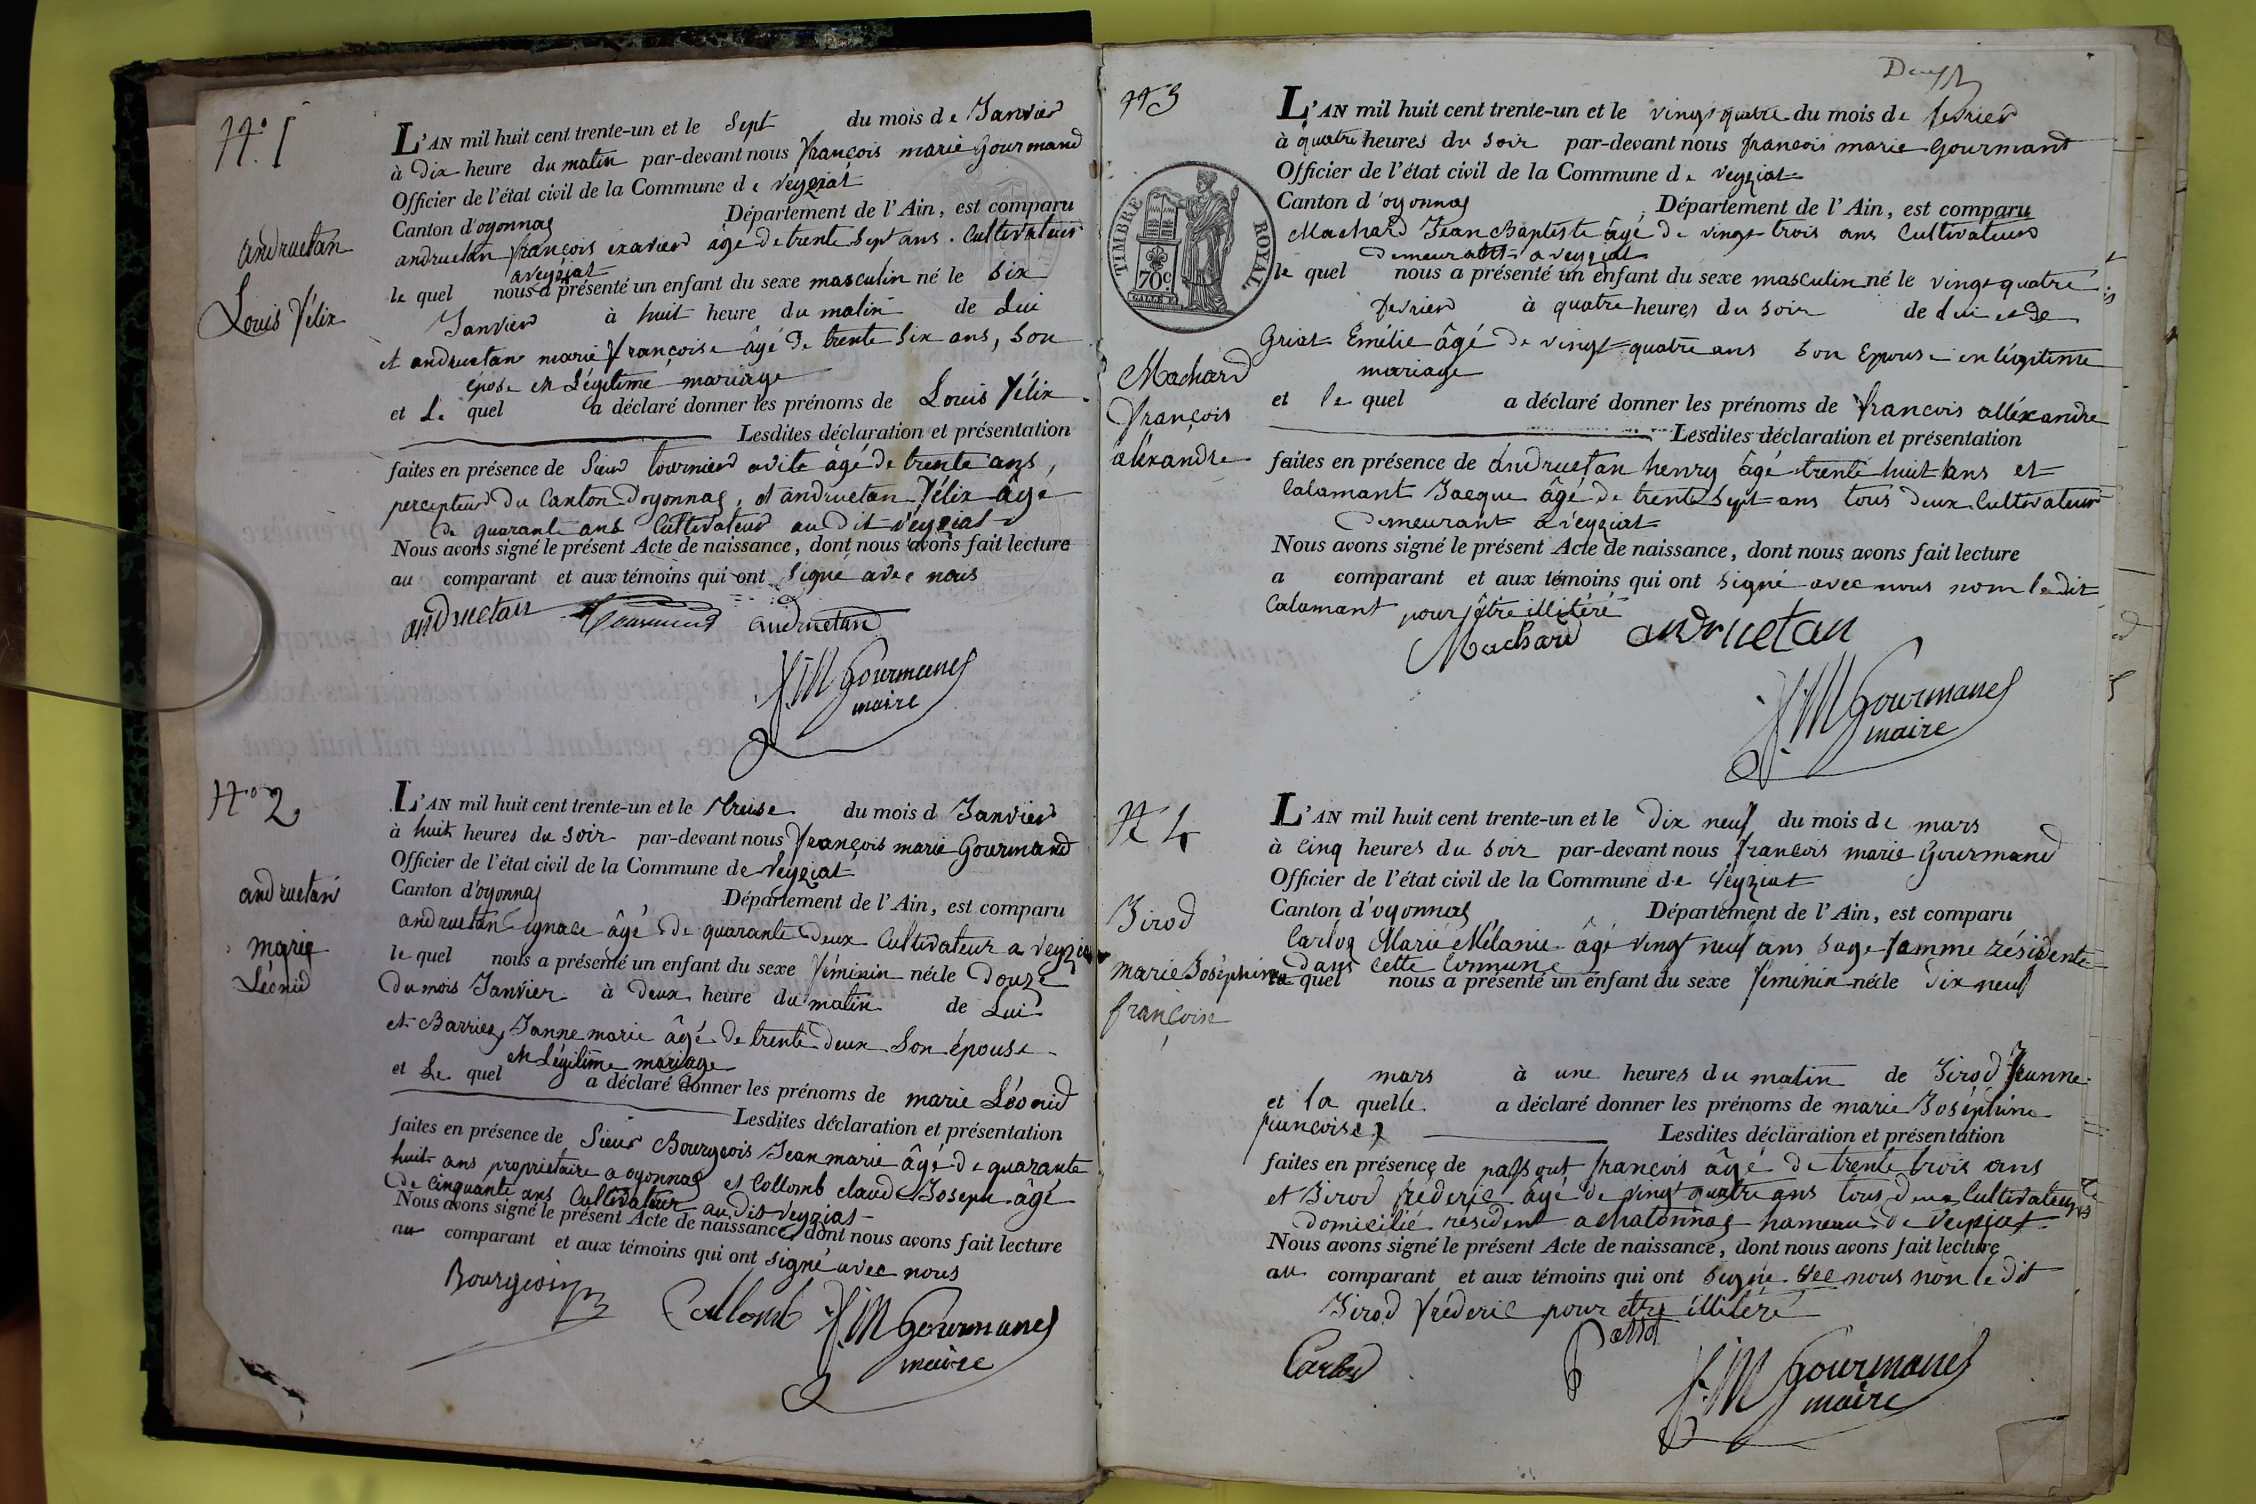 N.° 1
andruetan
Louis Félix
L'AN mil huit cent trente-un et le Sept du mois de Janvier
à Dix heure du matin par-devant nous françois marie Gourmand
Officier de l'état civil de la Commune de veyziat
Canton d'oyonnas Département de l'Ain, est comparu
andruetan françois exavier âgé de trente Sept ans. Cultivateur
a veyziat
le quel nous a présenté un enfant du sexe masculin né le Six
Janvier à huit heure du matin de Lui
et andruetan marie françoise âgé de trente Six ans, Son
epose en Légitime mariage
et Le quel a déclaré donner les prénoms de Louis Félix
Lesdites déclaration et présentation
faites en présence de Sieur tournier avite âgé de trente ans,
percepteur du Canton Doyonnas, et andruetan Félix âgé
de quarante ans Cultivateur au dit veyziat
Nous avons signé le présent Acte de naissance, dont nous avons fait lecture
au comparant et aux témoins qui ont Signé avec nous
andruetan andruetan
f. M Gourmand
maire
N.° 2
andruetan
marie
Léonid
L'AN mil huit cent trente-un et le Treise du mois d Janvier
à huit heures du Soir par-devant nous françois marie Gourmand
Officier de l'état civil de la Commune de Veyziat
Canton d'oyonnas Département de l'Ain, est comparu
andruetan ignace âgé de quarante Deux Cultivateur a veyziat
le quel nous a présenté un enfant du sexe féminin née le Douze
Du mois Janvier à Deux heure du matin de Lui
et Barrier Janne marie âgé de trente deux Son épouse
en Légitime mariage
et Le quel a déclaré donner les prénoms de marie Léonid
Lesdites déclaration et présentation
faites en présence de Sieur Bourgeois Jean marie âgé de quarante
huit ans propriétaire a oyonnas et Collomb claude Joseph âgé
de Cinquante ans Cultivateur au dit veyziat
Nous avons signé le présent Acte de naissance, dont nous avons fait lecture
au comparant et aux témoins qui ont Signé avec nous
Bourgeois Collomb f. M Gourmand
maire
N 3
TIMBRE ROYAL
70 c
Machard
françois
aléxandre
L'AN mil huit cent trente-un et le vingt quatre du mois de fevrier
à quatre heures du Soir par-devant nous francois marie Gourmand
Officier de l'état civil de la Commune de veyziat
Canton d'oyonnas Département de l'Ain, est comparu
Machard Jean Baptiste âgé de vingt trois ans Cultivateur
Demeurant a veyziat
le quel nous a présenté un enfant du sexe masculin né le vingt quatre
fevrier à quatre heures du Soir de Lui et de
Griat Emélie âgé de vingt quatre ans Son Epouse en légitime
mariage
et le quel a déclaré donner les prénoms de francois alléxandre
Lesdites déclaration et présentation
faites en présence de andruetan henry âgé trente huit ans et
Calamant Jacque âgé de trente Sept ans tous deux Cultivateur
Demeurant a veyziat
Nous avons signé le présent Acte de naissance, dont nous avons fait lecture
a comparant et aux témoins qui ont signé avec nous nom le dit
Calamant pour âtre illitéré
Machard andruetan
f. M Gourmand
maire
N 4
Girod
marie Joséphine
françoise
L'AN mil huit cent trente-un et le Dix neuf du mois de mars
à Cinq heures du Soir par-devant nous francois marie Gourmand
Officier de l'état civil de la Commune de Veyziat
Canton d'oyonnas Département de l'Ain, est comparu
Carloz Marie Mélanie âgé vingt neuf ans Sage famme résidente
dans Cette Commune
la quel nous a présenté un enfant du sexe féminin née le Dix neuf
mars à une heures du matin de Girod Jeanne
et la quelle a déclaré donner les prénoms de marie Joséphine
francoise Lesdites déclaration et présentation
faites en présence de françois âgé de trente trois ans
et Girod fréderic âgé de vingt quatre ans tous deux Cultivateurs
domicilié résident a chatonnas hameau de Veyziat
Nous avons signé le présent Acte de naissance, dont nous avons fait lecture
au comparant et aux témoins qui ont Signé avec nous non le dit
Girod fréderic pour etre illitéré
f. M Gourmand
maire